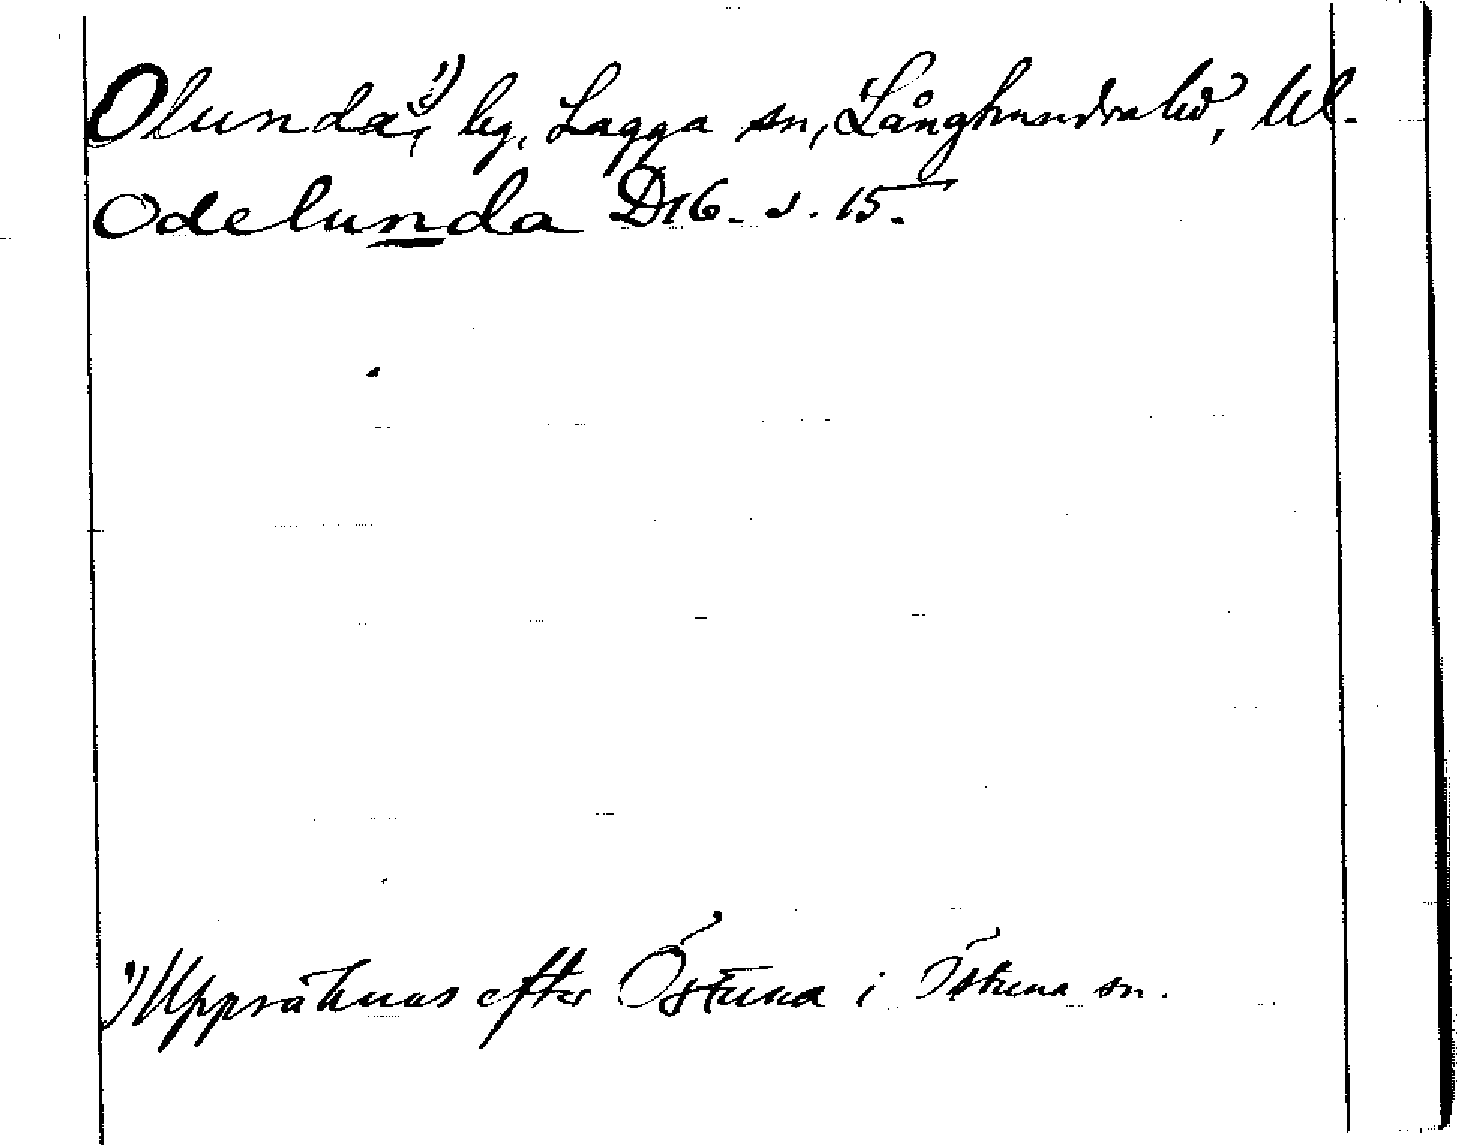 Olunda,¹) by, Lagga sn, Långhundra hd, Ul.
Odelunda D16. s. 15.
¹) Uppräknas efter Östuna i Östuna sn.